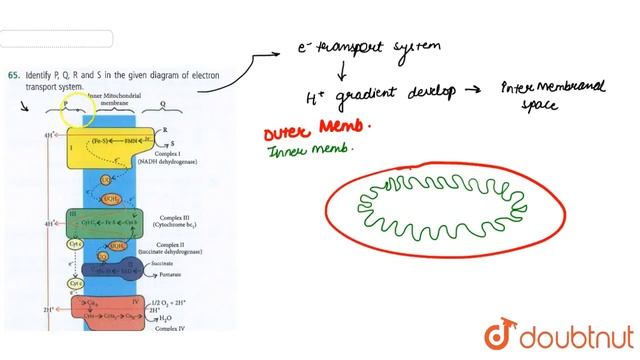 65. Identify P, Q, R and S in the given diagram of electron
transport system.
Inner Mitochondrial
membrane
P
Q
4H+
I
(Fe-S)
FMN
R
S
Complex I
(NADH dehydrogenase)
e-
UQ
UQH2
III
4H+
Cyt C1
Fe-S
Cyt b
Complex III
(Cytochrome bc1)
Cyt c
UQH2
UQ
Complex II
(Succinate dehydrogenase)
II
Succinate
Fumarate
(Fe-S)
FAD
e-
Cyt c
IV
CuA
1/2 O2 + 2H+
2H+
2H+
Cyta
Cyta3
CuB
H2O
Complex IV
e- transport system
H+ gradient develop → Inter membranal
space
Outer Memb.
Inner memb.
doubtnut